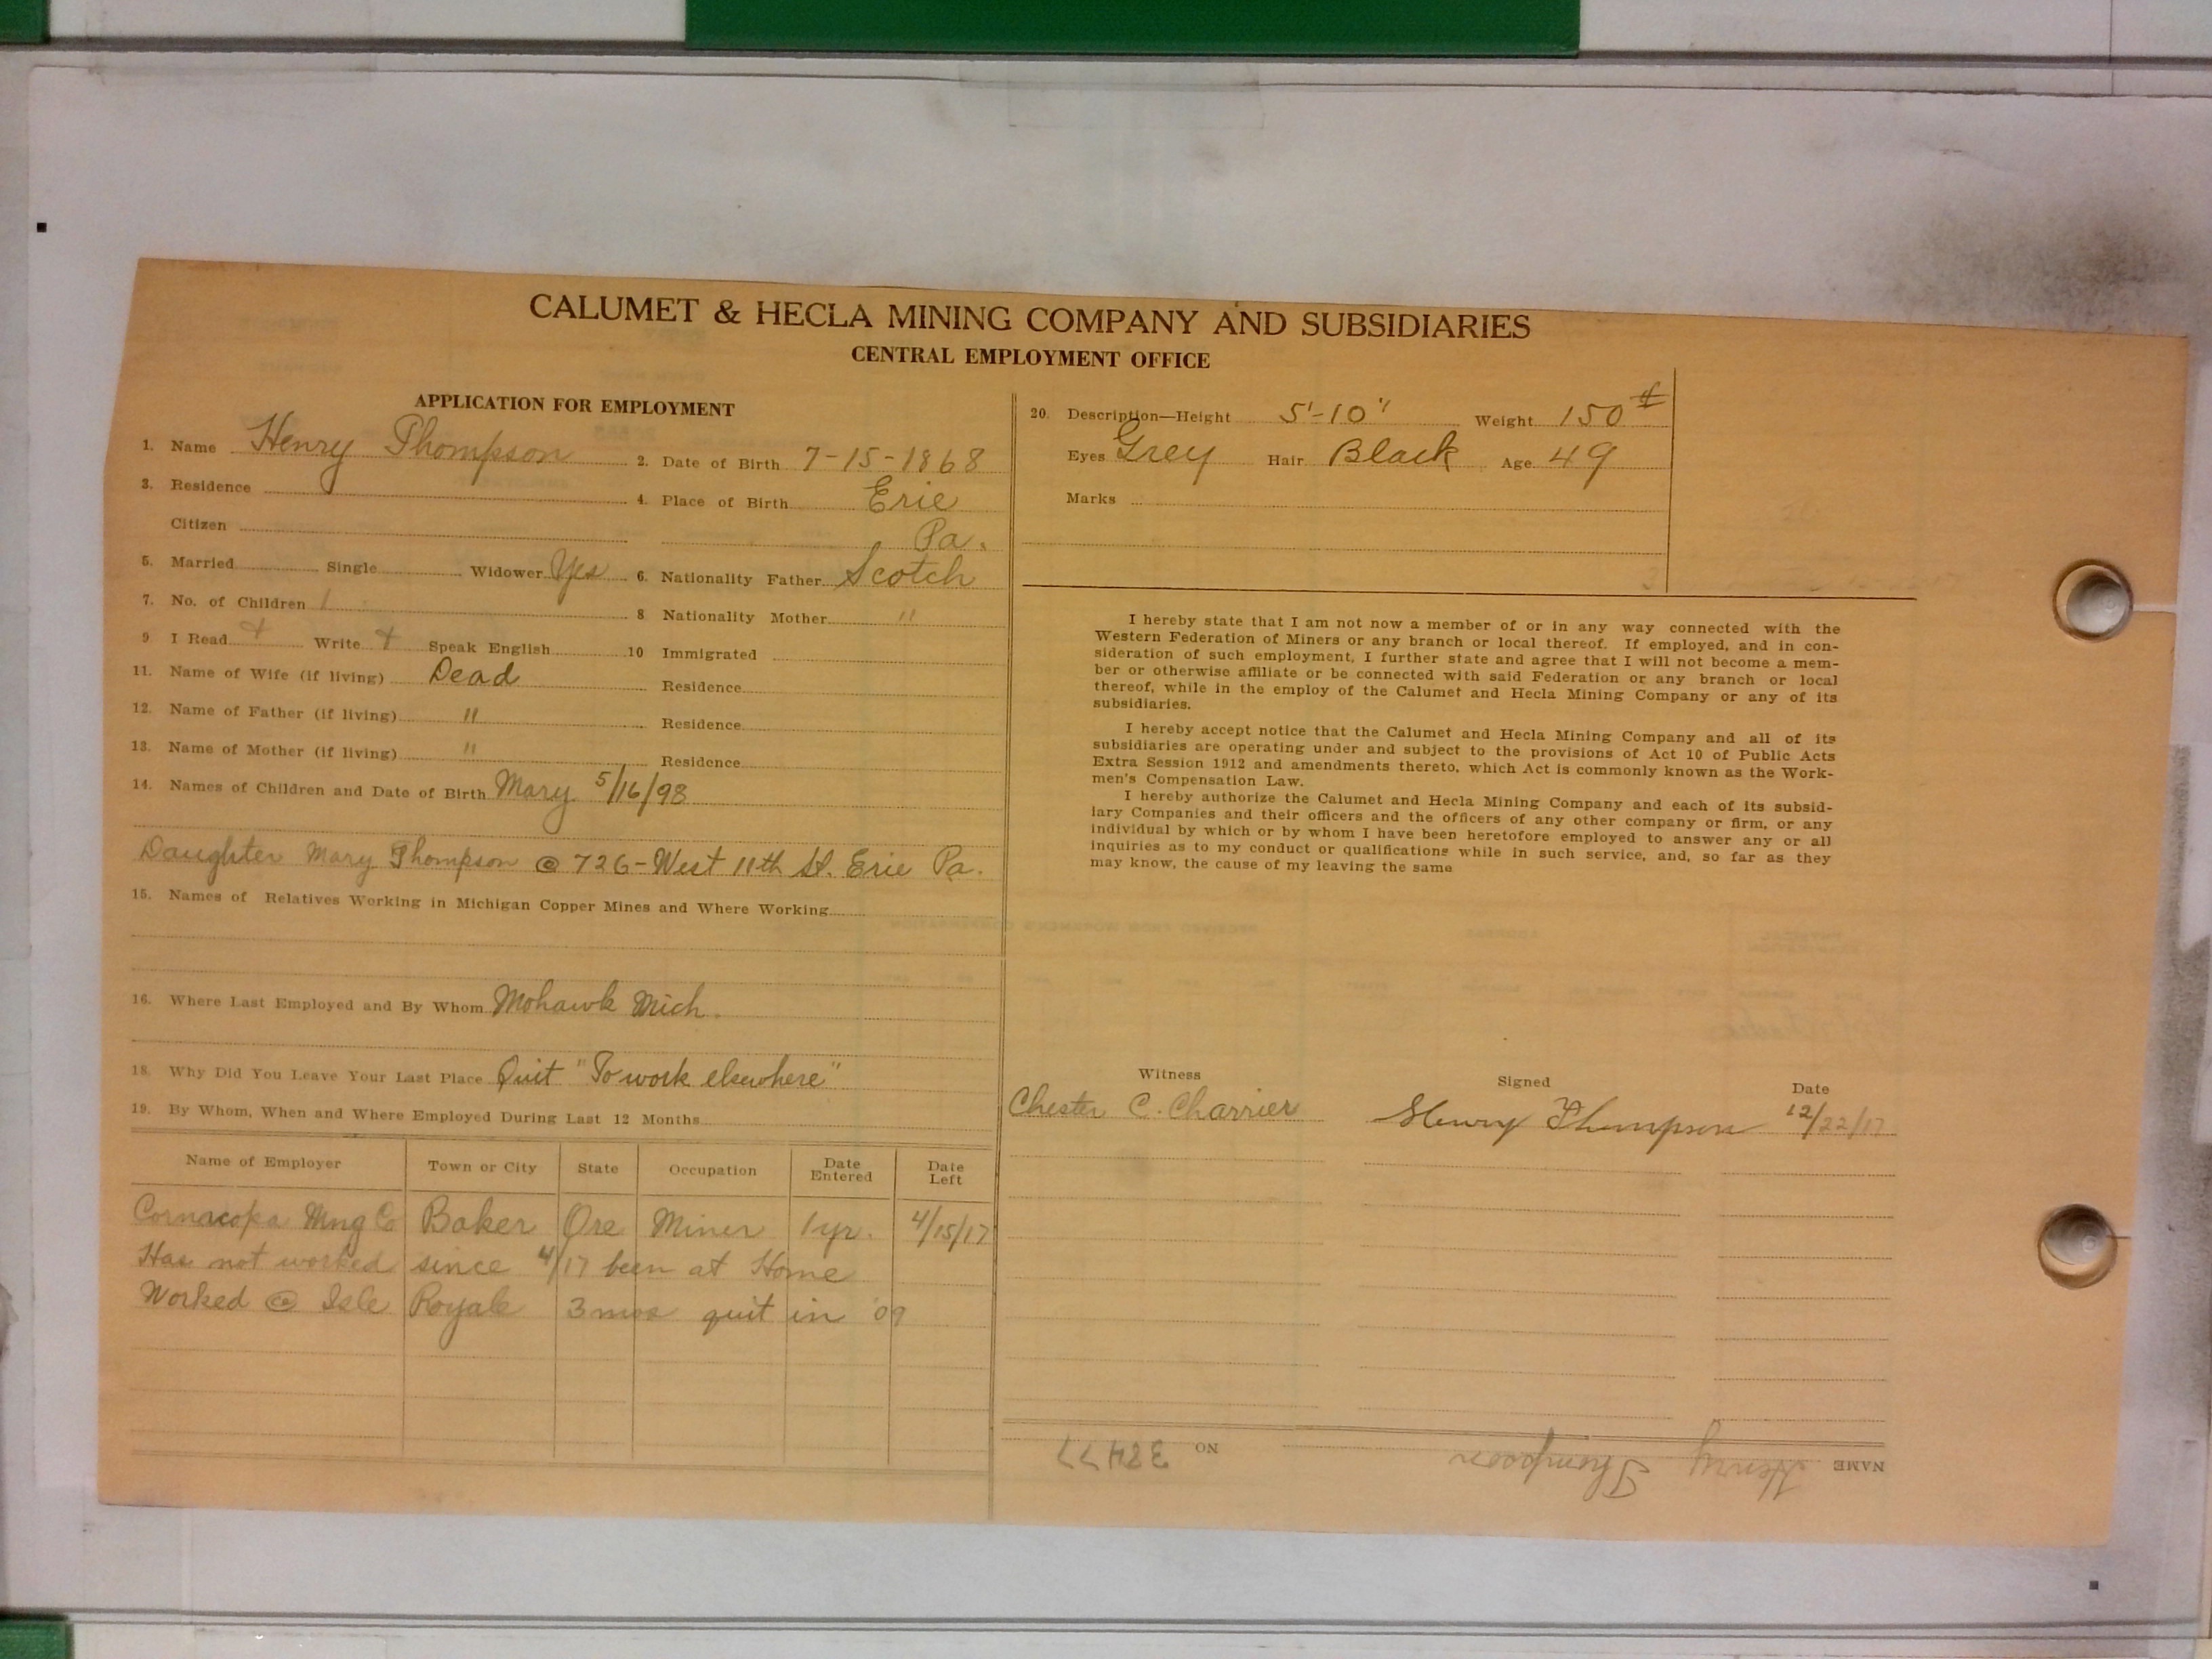 CALUMET & HECLA MINING COMPANY AND SUBSIDIARIES
CENTRAL EMPLOYMENT OFFICE
APPLICATION FOR EMPLOYMENT
1. Name Henry Thompson 2. Date of Birth 7-15-1868
3. Residence 4. Place of Birth Erie
Citizen Pa.
5. Married Single Widower Yes 6. Nationality Father Scotch
7. No. of Children 1 8 Nationality Mother "
9 I Read + Write + Speak English 10 Immigrated
11. Name of Wife (if living) Dead Residence
12. Name of Father (if living) " Residence
13. Name of Mother (if living) " Residence
14. Names of Children and Date of Birth Mary 5/16/98
Daughter Mary Thompson @ 726-West 11th St. Erie Pa.
15. Names of Relatives Working in Michigan Copper Mines and Where Working
16. Where Last Employed and By Whom Mohawk Mich.
18. Why Did You Leave Your Last Place Quit "To work elsewhere"
19. By Whom, When and Where Employed During Last 12 Months
Name of Employer Town or City State Occupation Date Entered Date Left
Cornacopa Mng Co Baker Ore Miner 1 yr. 4/15/17
Has not worked since 4/17 been at Home
Worked @ Isle Royale 3 mos quit in '09
20. Description—Height 5'-10" Weight 150#
Eyes Grey Hair Black Age 49
Marks
I hereby state that I am not now a member of or in any way connected with the
Western Federation of Miners or any branch or local thereof. If employed, and in con-
sideration of such employment, I further state and agree that I will not become a mem-
ber or otherwise affiliate or be connected with said Federation or any branch or local
thereof, while in the employ of the Calumet and Hecla Mining Company or any of its
subsidiaries.
I hereby accept notice that the Calumet and Hecla Mining Company and all of its
subsidiaries are operating under and subject to the provisions of Act 10 of Public Acts
Extra Session 1912 and amendments thereto, which Act is commonly known as the Work-
men's Compensation Law.
I hereby authorize the Calumet and Hecla Mining Company and each of its subsid-
iary Companies and their officers and the officers of any other company or firm, or any
individual by which or by whom I have been heretofore employed to answer any or all
inquiries as to my conduct or qualifications while in such service, and, so far as they
may know, the cause of my leaving the same
Witness Signed Date
Chester C. Charrier Henry Thompson 12/22/17
NAME Henry Thompson NO 32477